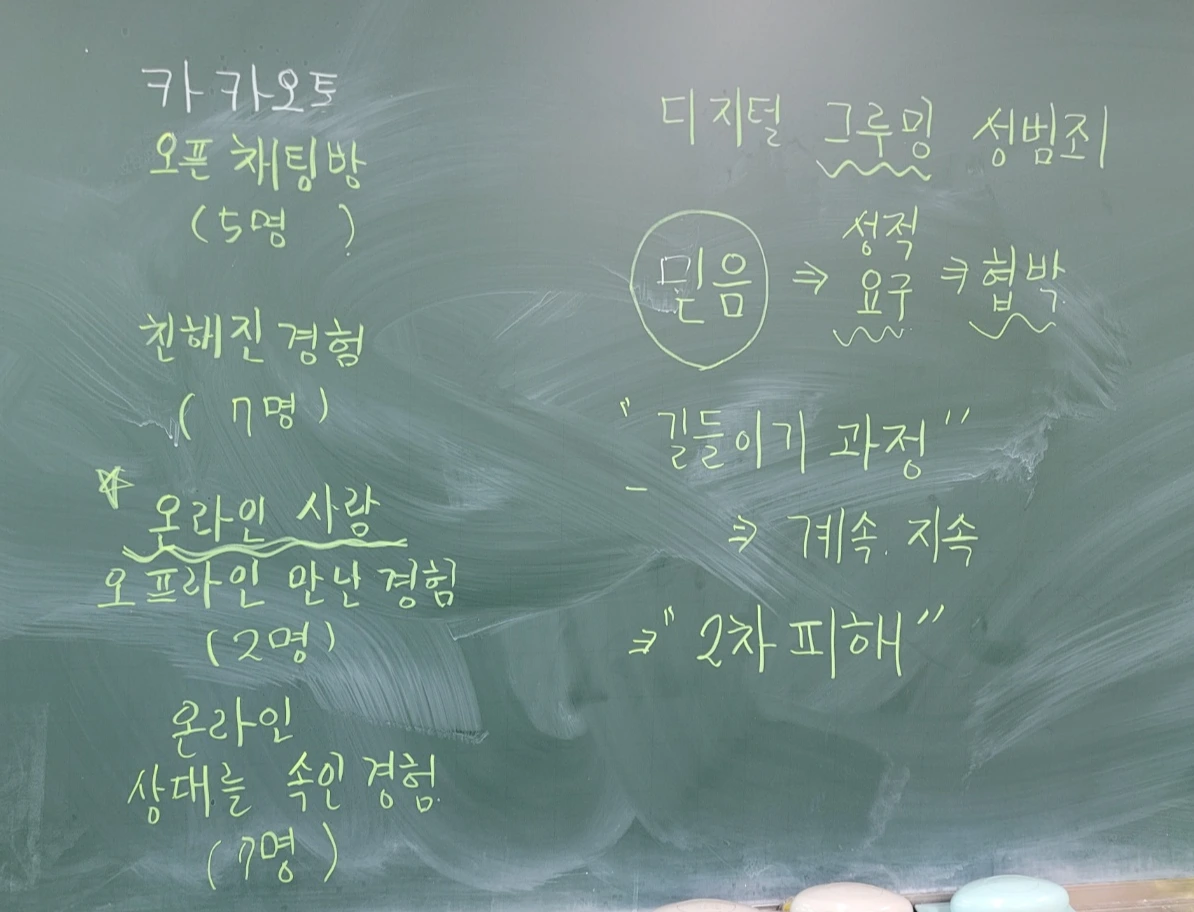 카카오톡
오픈 채팅방
(5명 )
친해진 경험
(7명)
온라인 사람
오프라인 만난 경험
(2명)
온라인
상대를 속인 경험
(7명)
디지털 그루밍 성범죄
믿음 ⇒ 성적 요구 ⇒ 협박
"길들이기 과정"
⇒ 계속. 지속
⇒ "2차 피해"